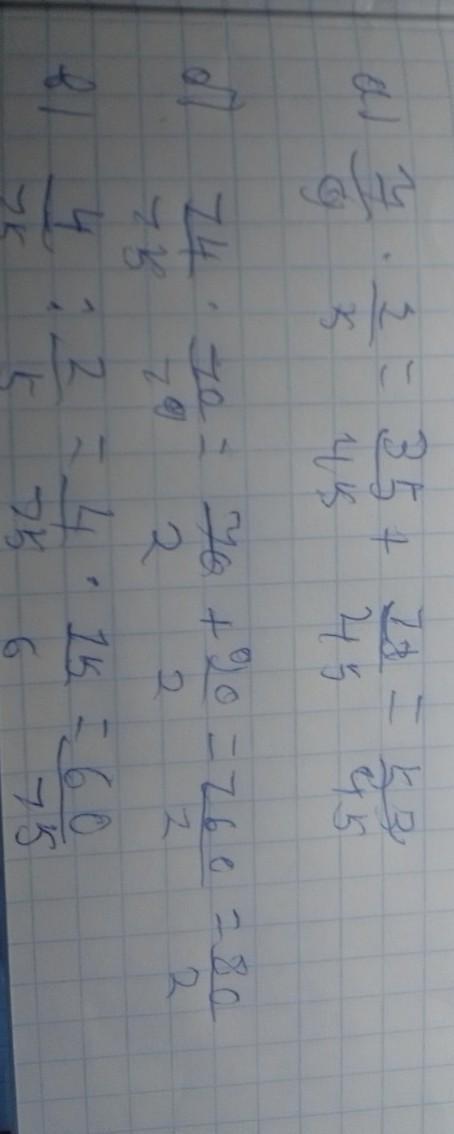 а) 7/9 · 2/5 = 35/45 + 18/45 = 53/45
б) 14/15 · 10/19 = 70/2 + 90/2 = 160/2 = 80/2
в) 4/15 : 2/5 = 4/15 · 15/6 = 60/75